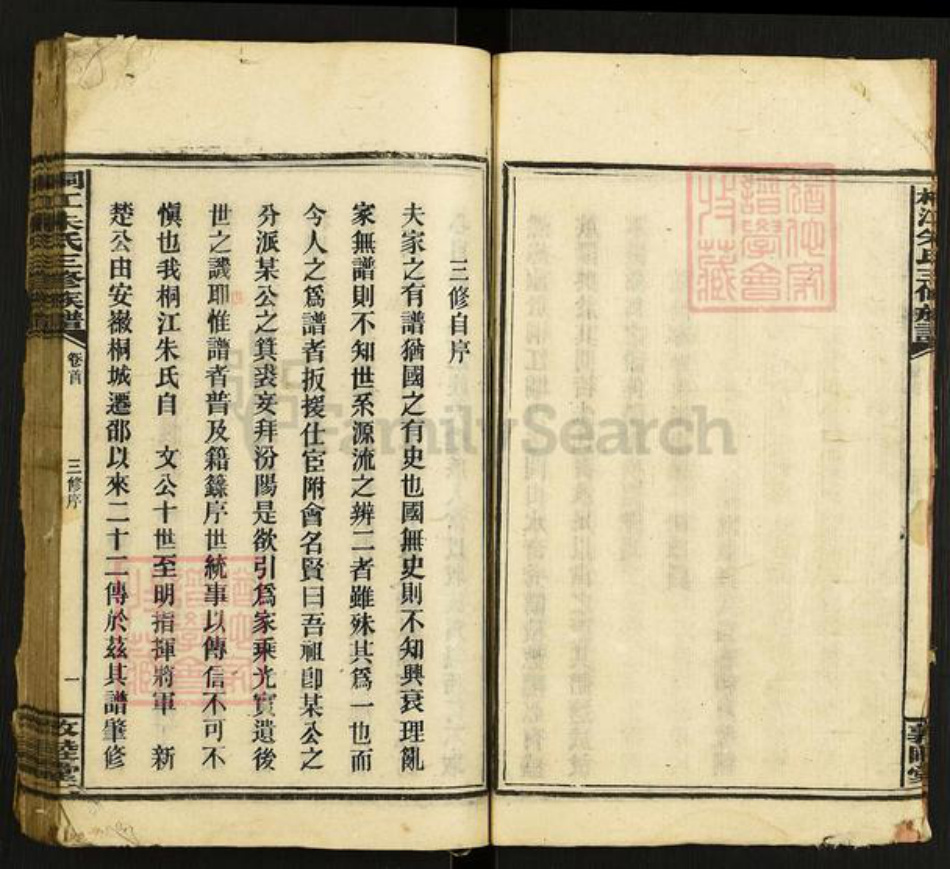 桐江朱氏三修族譜
三修自序
夫家之有譜猶國之有史也國無史則不知興衰理亂
家無譜則不知世系源流之辨二者雖殊其爲一也而
今人之爲譜者扳援仕宦附會名賢曰吾祖卽某公之
分派某公之箕裘妄拜汾陽是欲引爲家乘光實遺後
世之譏耶惟譜者普及籍錄序世統事以傳信不可不
愼也我桐江朱氏自 文公十世至明指揮將軍 新
楚公由安徽桐城遷邵以來二十二傳於茲其譜肇修
桐江朱氏三修族譜 卷首 三修序 一 敦睦堂
FamilySearch